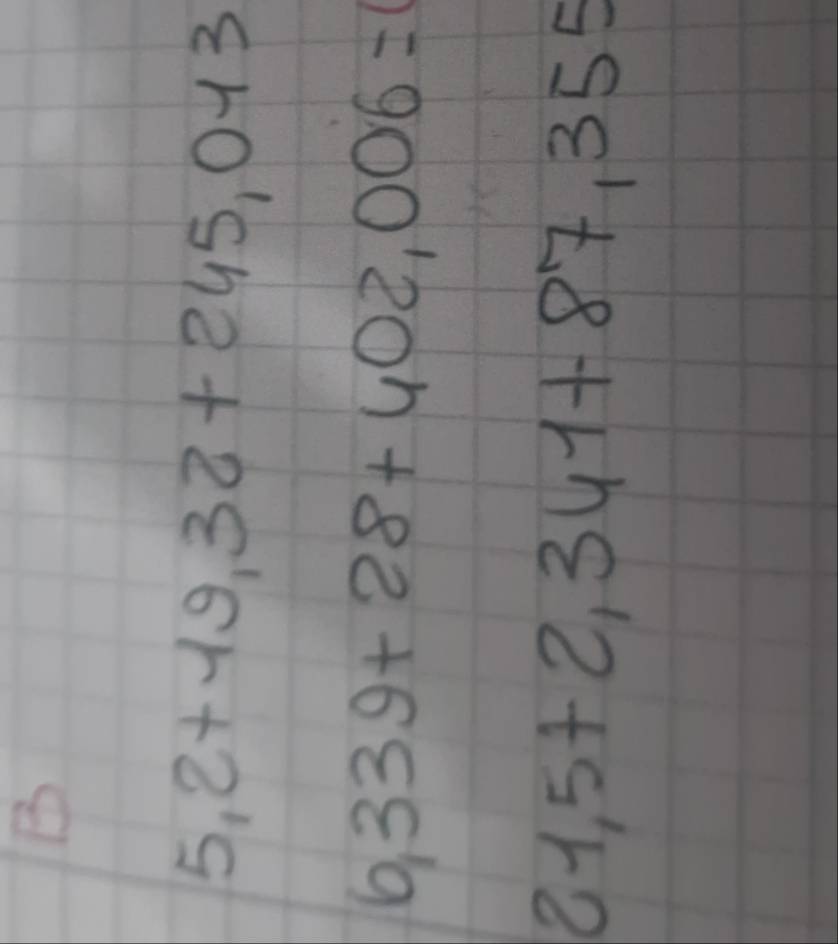 B
5,2+19,32+245,013
6,339+28+402,006=
21,5+2,341+87,355